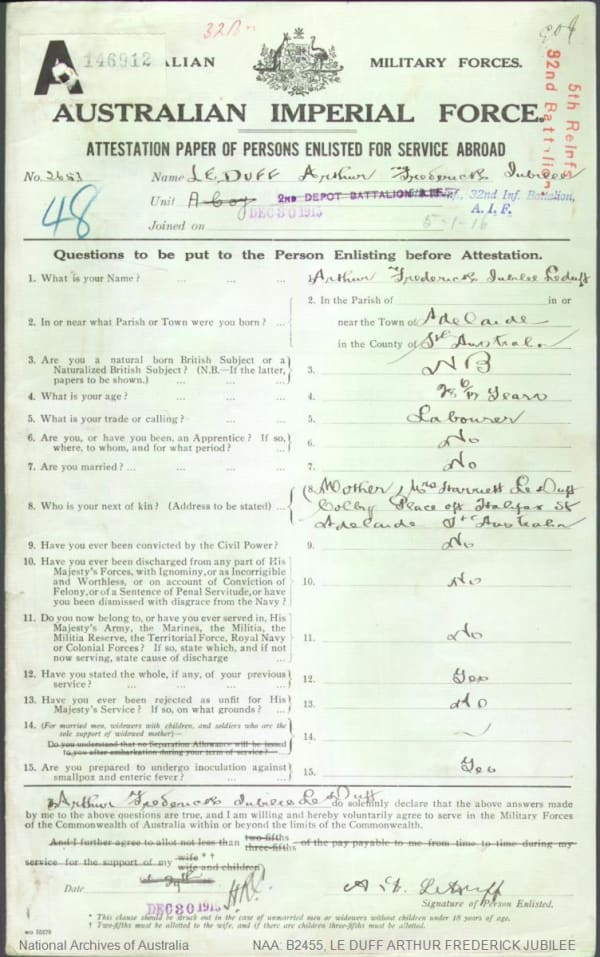 32Bn
A 146912 ALIAN MILITARY FORCES.
AUSTRALIAN IMPERIAL FORCE.
5th Reinfs
32nd Battalion
ATTESTATION PAPER OF PERSONS ENLISTED FOR SERVICE ABROAD
No. 2653 Name LE DUFF Arthur Frederick Jubilee
48
Unit A Coy 2ND DEPOT BATTALION Inf., 32nd Inf. Battalion,
A. I. F.
DEC 30 1915
Joined on 5-1-16
Questions to be put to the Person Enlisting before Attestation.
1. What is your Name? ... ... ... 1. Arthur Frederick Jubilee Leduff
2. In or near what Parish or Town were you born? ... 2. In the Parish of in or
near the Town of Adelaide
in the County of Sth Australia
3. Are you a natural born British Subject or a
Naturalized British Subject? (N.B.—If the latter,
papers to be shown.) ... ... ... 3. NB
4. What is your age? ... ... ... 4. 28 6/12 Years
5. What is your trade or calling? ... ... 5. Labourer
6. Are you, or have you been, an Apprentice? If so,
where, to whom, and for what period? ... 6. No
7. Are you married? ... ... ... 7. No
8. Who is your next of kin? (Address to be stated) ... 8. Mother, Mrs Harriett Le Duff
Colby Place off Halifax St
Adelaide Sth Australia
9. Have you ever been convicted by the Civil Power? 9. No
10. Have you ever been discharged from any part of His
Majesty's Forces, with Ignominy, or as Incorrigible
and Worthless, or on account of Conviction of
Felony, or of a Sentence of Penal Servitude, or have
you been dismissed with disgrace from the Navy? 10. No
11. Do you now belong to, or have you ever served in, His
Majesty's Army, the Marines, the Militia, the
Militia Reserve, the Territorial Force, Royal Navy
or Colonial Forces? If so, state which, and if not
now serving, state cause of discharge ... 11. No
12. Have you stated the whole, if any, of your previous
service? ... ... ... ... 12. Yes
13. Have you ever been rejected as unfit for His
Majesty's Service? If so, on what grounds? ... 13. No
14. (For married men, widowers with children, and soldiers who are the
sole support of widowed mother)—
Do you understand that no Separation Allowance will be issued
to you after embarkation during your term of service? 14.
15. Are you prepared to undergo inoculation against
smallpox and enteric fever? ... ... 15. Yes
I, Arthur Frederick Jubilee Le Duff do solemnly declare that the above answers made
by me to the above questions are true, and I am willing and hereby voluntarily agree to serve in the Military Forces
of the Commonwealth of Australia within or beyond the limits of the Commonwealth.
And I further agree to allot not less than two-fifths three-fifths of the pay payable to me from time to time during my
service for the support of my wife * † wife and children
Date DEC 30 1915
Signature of Person Enlisted.
* This clause should be struck out in the case of unmarried men or widowers without children under 18 years of age.
† Two-fifths must be allotted to the wife, and if there are children three-fifths must be allotted.
National Archives of Australia NAA: B2455, LE DUFF ARTHUR FREDERICK JUBILEE